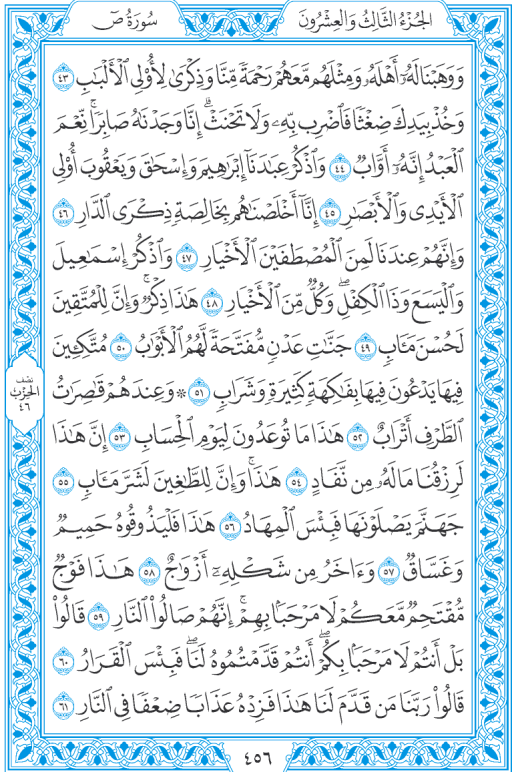 الجُزْءُ الثَّالِثُ وَالعِشْرُونَ
سُورَةُ صٓ
وَوَهَبْنَا لَهُۥٓ أَهْلَهُۥ وَمِثْلَهُم مَّعَهُمْ رَحْمَةً مِّنَّا وَذِكْرَىٰ لِأُو۟لِى ٱلْأَلْبَٰبِ ٤٣
وَخُذْ بِيَدِكَ ضِغْثًا فَٱضْرِب بِّهِۦ وَلَا تَحْنَثْ ۗ إِنَّا وَجَدْنَٰهُ صَابِرًا ۚ نِّعْمَ
ٱلْعَبْدُ ۖ إِنَّهُۥٓ أَوَّابٌ ٤٤ وَٱذْكُرْ عِبَٰدَنَآ إِبْرَٰهِيمَ وَإِسْحَٰقَ وَيَعْقُوبَ أُو۟لِى
ٱلْأَيْدِى وَٱلْأَبْصَٰرِ ٤٥ إِنَّآ أَخْلَصْنَٰهُم بِخَالِصَةٍ ذِكْرَى ٱلدَّارِ ٤٦
وَإِنَّهُمْ عِندَنَا لَمِنَ ٱلْمُصْطَفَيْنَ ٱلْأَخْيَارِ ٤٧ وَٱذْكُرْ إِسْمَٰعِيلَ
وَٱلْيَسَعَ وَذَا ٱلْكِفْلِ ۖ وَكُلٌّ مِّنَ ٱلْأَخْيَارِ ٤٨ هَٰذَا ذِكْرٌ ۚ وَإِنَّ لِلْمُتَّقِينَ
لَحُسْنَ مَـَٔابٍ ٤٩ جَنَّٰتِ عَدْنٍ مُّفَتَّحَةً لَّهُمُ ٱلْأَبْوَٰبُ ٥٠ مُتَّكِـِٔينَ
فِيهَا يَدْعُونَ فِيهَا بِفَٰكِهَةٍ كَثِيرَةٍ وَشَرَابٍ ٥١ ۞ وَعِندَهُمْ قَٰصِرَٰتُ
ٱلطَّرْفِ أَتْرَابٌ ٥٢ هَٰذَا مَا تُوعَدُونَ لِيَوْمِ ٱلْحِسَابِ ٥٣ إِنَّ هَٰذَا
لَرِزْقُنَا مَا لَهُۥ مِن نَّفَادٍ ٥٤ هَٰذَا ۚ وَإِنَّ لِلطَّٰغِينَ لَشَرَّ مَـَٔابٍ ٥٥
جَهَنَّمَ يَصْلَوْنَهَا فَبِئْسَ ٱلْمِهَادُ ٥٦ هَٰذَا فَلْيَذُوقُوهُ حَمِيمٌ
وَغَسَّاقٌ ٥٧ وَءَاخَرُ مِن شَكْلِهِۦٓ أَزْوَٰجٌ ٥٨ هَٰذَا فَوْجٌ
مُّقْتَحِمٌ مَّعَكُمْ ۖ لَا مَرْحَبًۢا بِهِمْ ۚ إِنَّهُمْ صَالُوا۟ ٱلنَّارِ ٥٩ قَالُوا۟
بَلْ أَنتُمْ لَا مَرْحَبًۢا بِكُمْ ۖ أَنتُمْ قَدَّمْتُمُوهُ لَنَا ۖ فَبِئْسَ ٱلْقَرَارُ ٦٠
قَالُوا۟ رَبَّنَا مَن قَدَّمَ لَنَا هَٰذَا فَزِدْهُ عَذَابًا ضِعْفًا فِى ٱلنَّارِ ٦١
نصف
الحزب
٤٦
٤٥٦